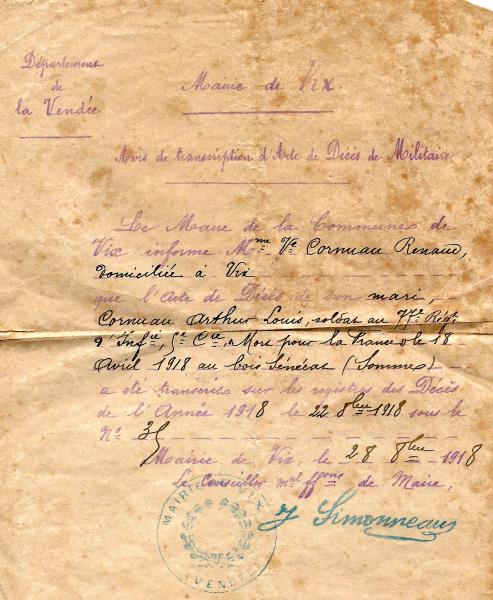 Département
de
la Vendée
Mairie de Vix
Avis de transcription d'Acte de Décès de Militaire
Le Maire de la Commune de
Vix informe Mme Vve Cornuau Renaud,
domiciliée à Vix
que l'Acte de Décès de son mari,
Cornuau Arthur Louis, soldat au 77e Régt
d'Infie, 5e Cie, "Mort pour la France" le 18
Avril 1918 au bois Sénécat (Somme)
a été transcrit sur les registres des Décès
de l'Année 1918 le 22 8bre 1918 sous le
No 35
Mairie de Vix, le 28 8bre 1918
Le Conseiller mal ffons de Maire,
MAIRIE DE VIX
(VENDÉE)
J Simonneau